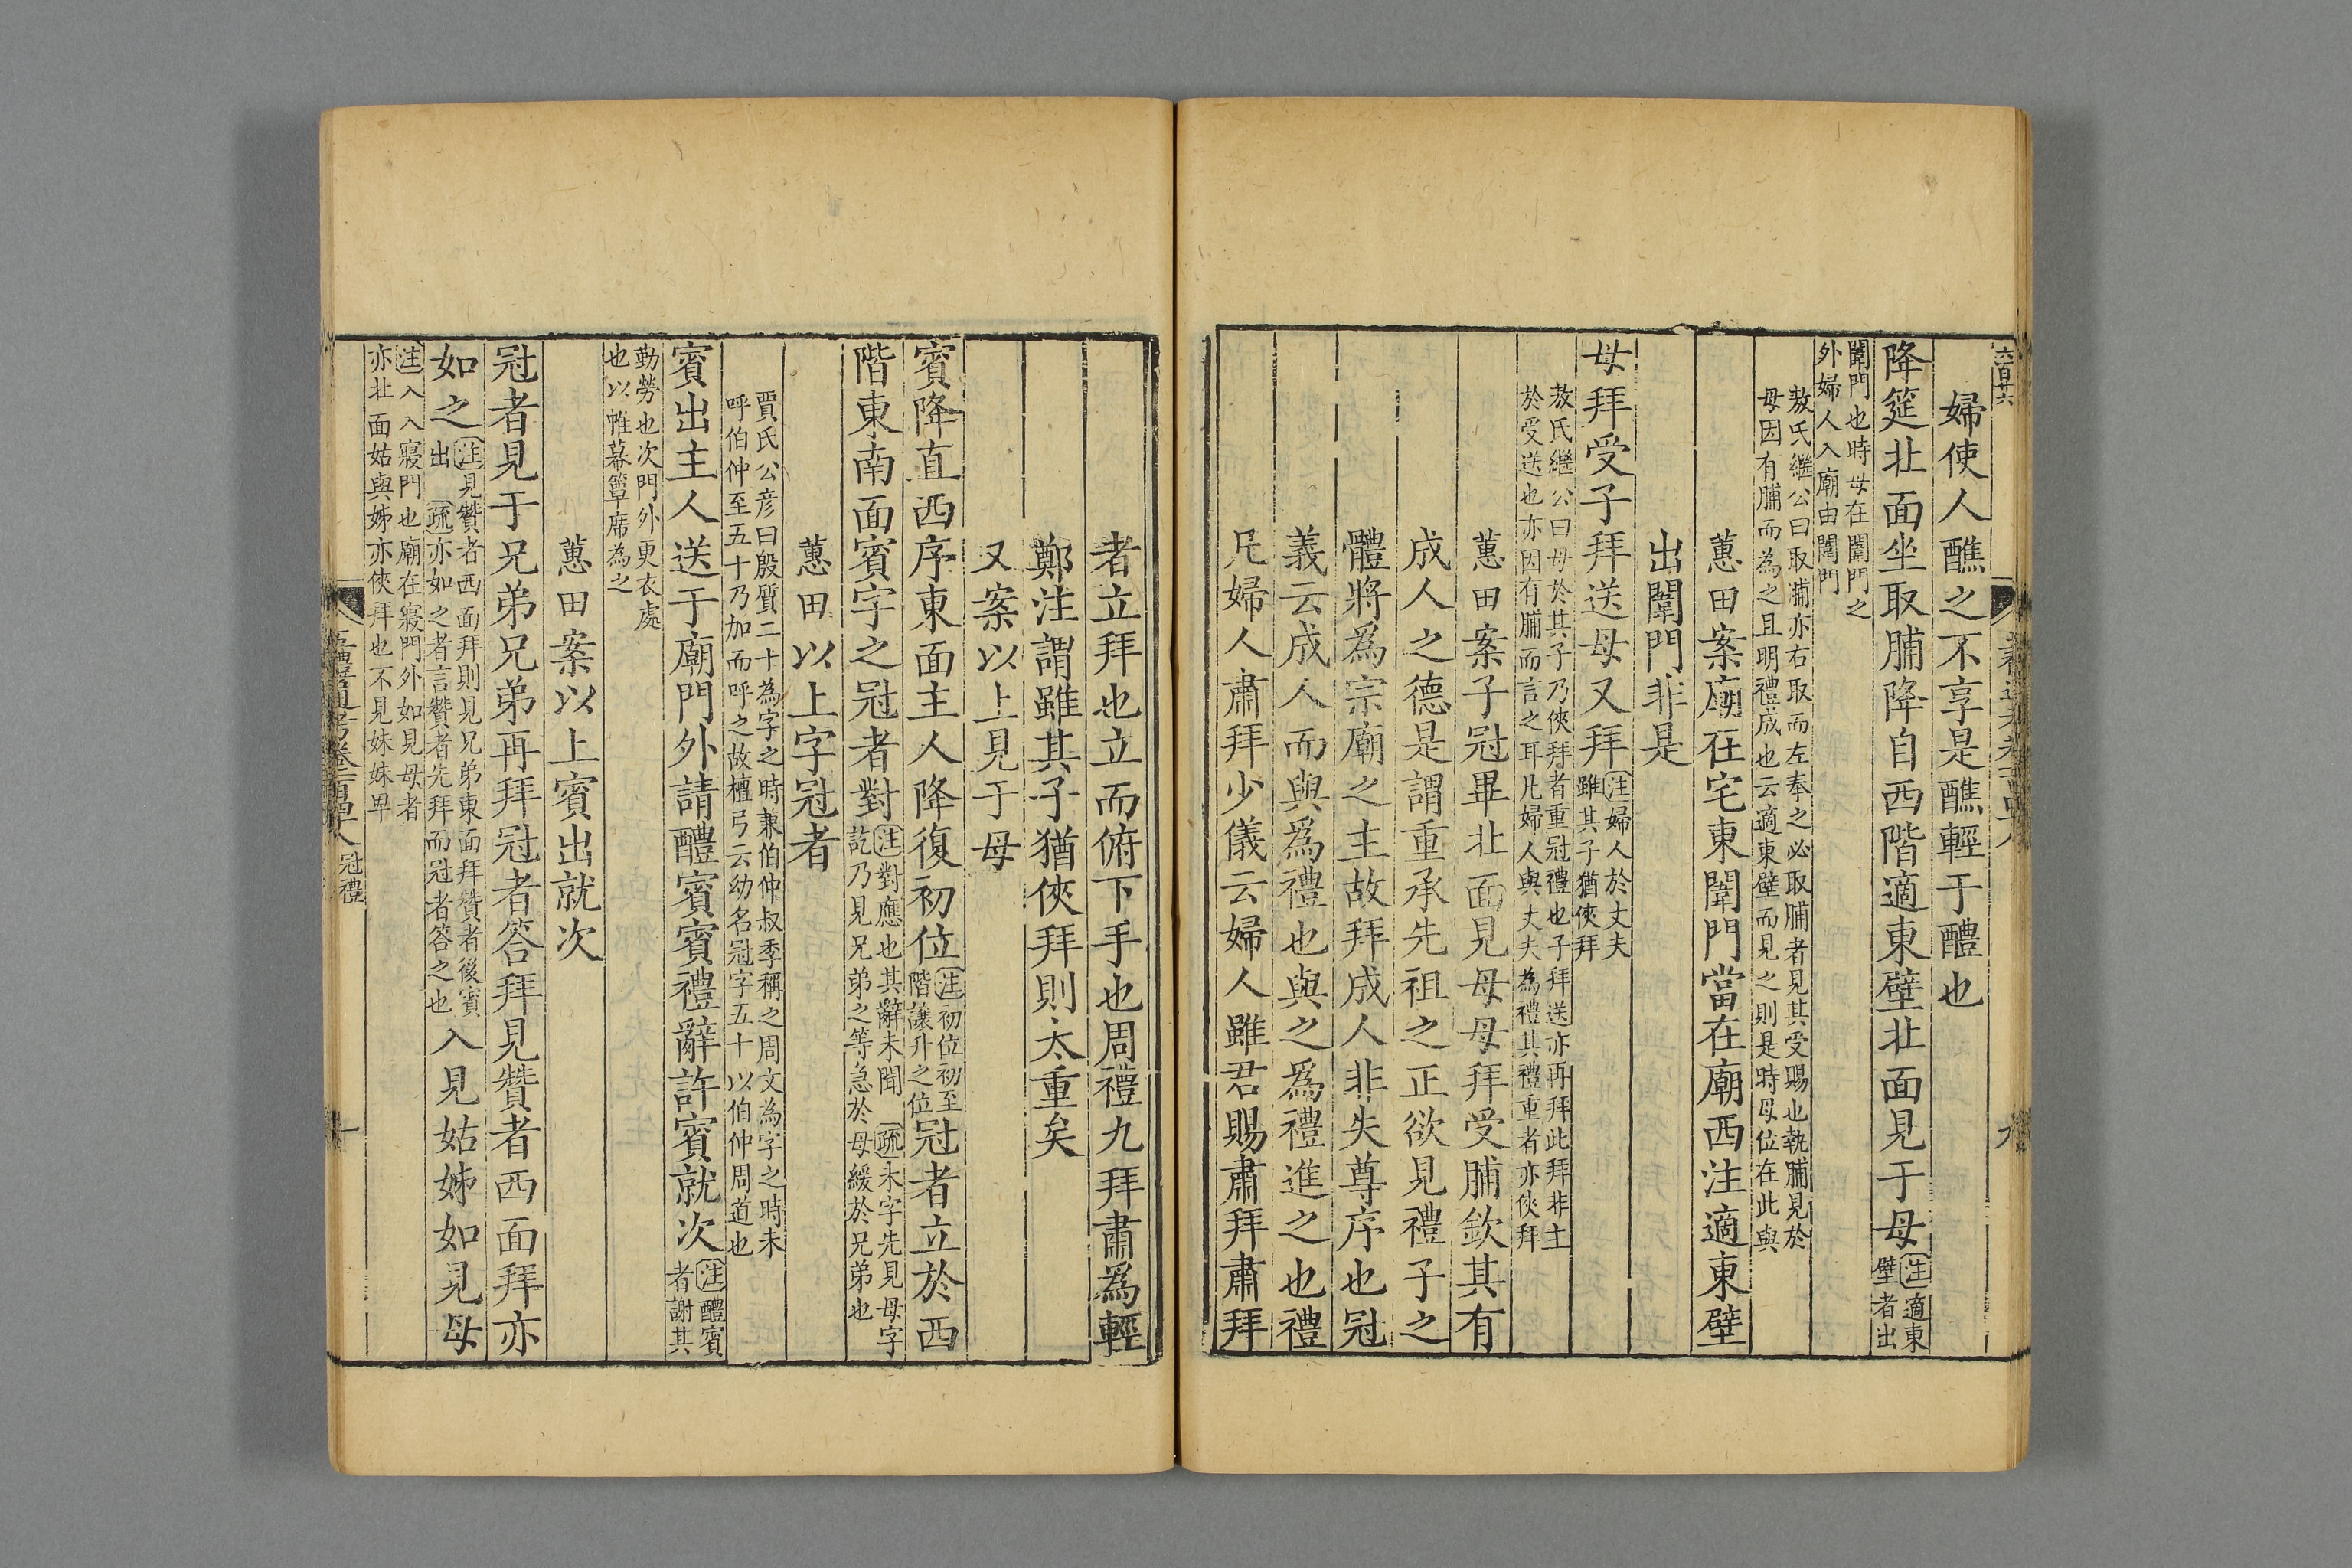 六百廿六
婦使人醮之不享是醮輕于醴也
降筵北面坐取脯降自西階適東壁北面見于母注適東
壁者出
闈門也時母在闈門之
外婦人入廟由闈門
敖氏繼公曰取脯亦右取而左奉之必取脯者見其受賜也執脯見於
母因有脯而為之且明禮成也云適東壁而見之則是時母位在此與
蕙田案廟在宅東闈門當在廟西注適東壁
出闈門非是
母拜受子拜送母又拜注婦人於丈夫
雖其子猶俠拜
敖氏繼公曰母於其子乃俠拜者重冠禮也子拜送亦再拜此拜非主
於受送也亦因有脯而言之耳凡婦人與丈夫為禮其禮重者亦俠拜
蕙田案子冠畢北面見母母拜受脯欽其有
成人之德是謂重承先祖之正欲見禮子之
體將爲宗廟之主故拜成人非失尊序也冠
義云成人而與爲禮也與之爲禮進之也禮
凡婦人肅拜少儀云婦人雖君賜肅拜肅拜
九
者立拜也立而俯下手也周禮九拜肅爲輕
鄭注謂雖其子猶俠拜則太重矣
又案以上見于母
賓降直西序東面主人降復初位注初位初至
階讓升之位冠者立於西
階東南面賓字之冠者對注對應也其辭未聞 疏未字先見母字
訖乃見兄弟之等急於母緩於兄弟也
蕙田以上字冠者
賈氏公彦曰殷質二十為字之時兼伯仲叔季稱之周文為字之時未
呼伯仲至五十乃加而呼之故檀弓云幼名冠字五十以伯仲周道也
賓出主人送于廟門外請醴賓賓禮辭許賓就次注醴賓
者謝其
勤勞也次門外更衣處
也以帷幕簟席為之
蕙田案以上賓出就次
冠者見于兄弟兄弟再拜冠者答拜見贊者西面拜亦
如之注見贊者西面拜則見兄弟東面拜贊者後賓
出 疏亦如之者言贊者先拜而冠者答之也入見姑姊如見母
注入入寢門也廟在寢門外如見母者
亦北面姑與姊亦俠拜也不見妹妹卑
五禮通考卷一百四十八 冠禮
十